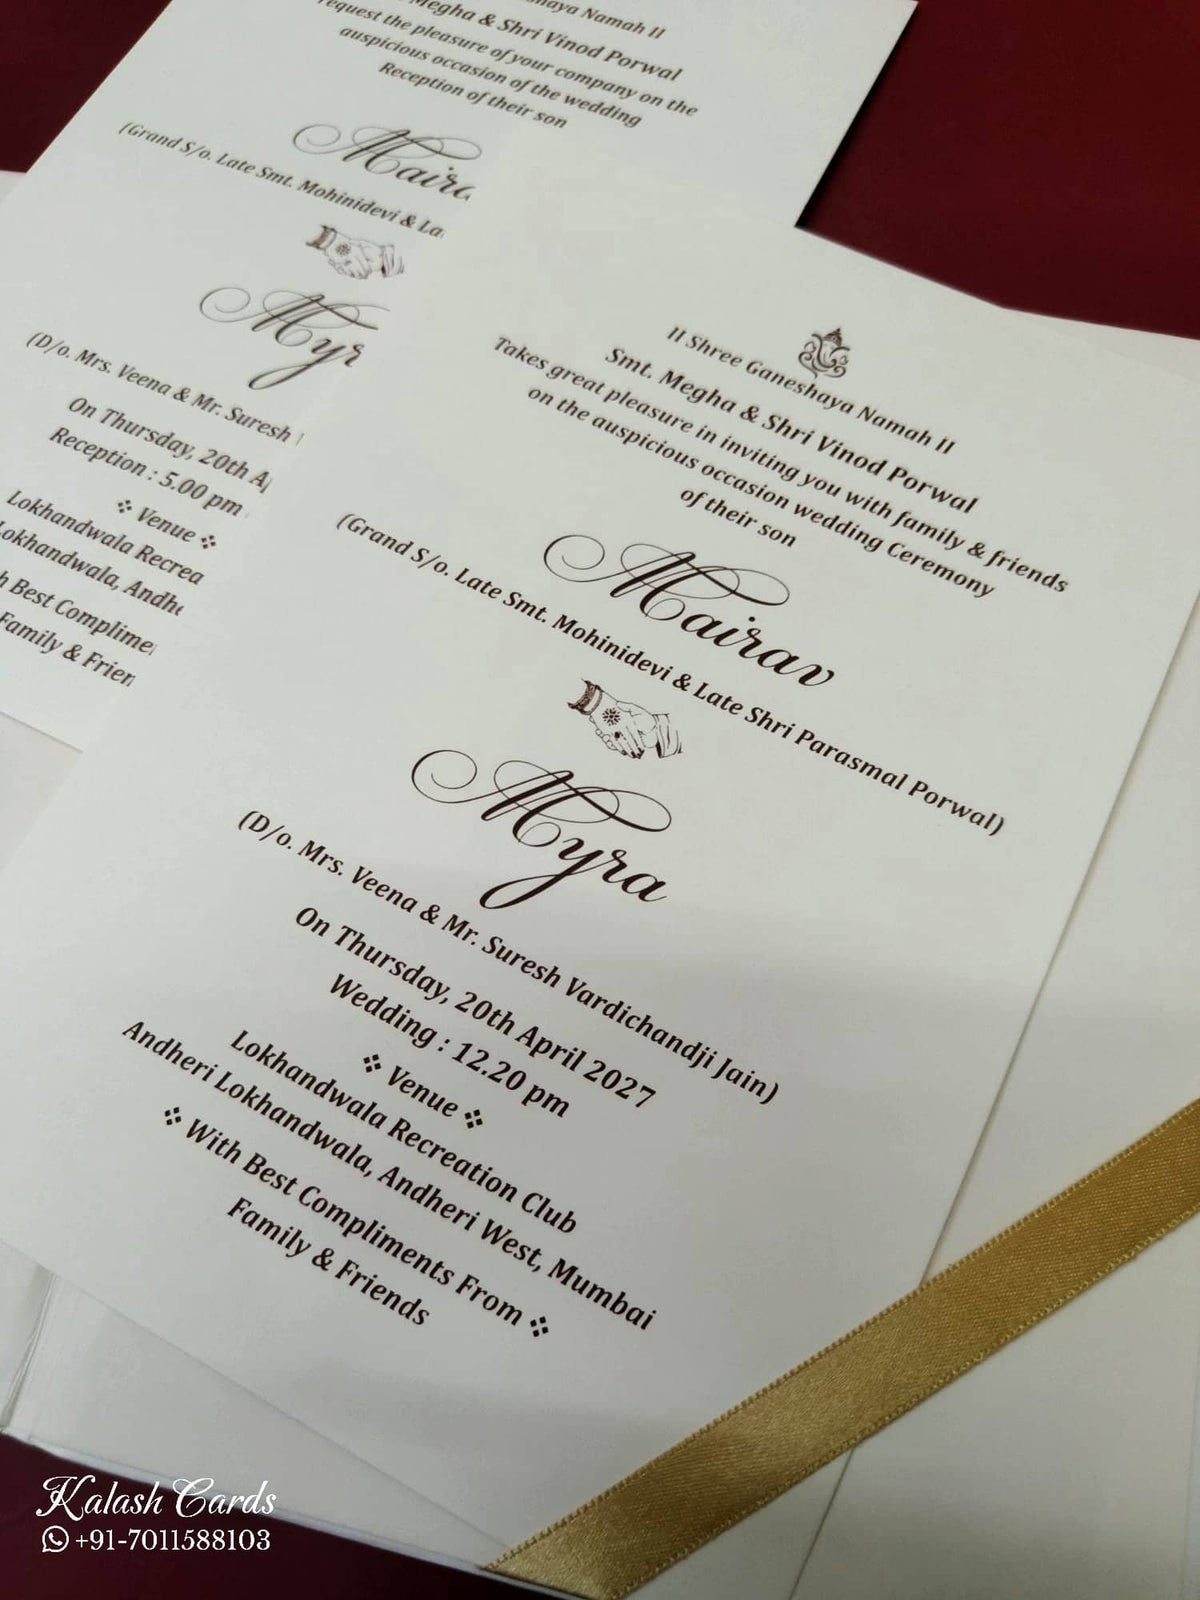 shaya Namah II
Megha & Shri Vinod Porwal
request the pleasure of your company on the
auspicious occasion of the wedding
Reception of their son
(Grand S/o. Late Smt. Mohinidevi &
(D/o. Mrs. Veena & Mr. Suresh
On Thursday, 20th
Reception : 5.00 pm
❖ Venue ❖
Lokhandwala Recrea
Lokhandwala,
Best
Family &
II Shree Ganeshaya Namah II
Smt. Megha & Shri Vinod Porwal
Takes great pleasure in inviting you with family & friends
on the auspicious occasion wedding Ceremony
of their son
Mairav
(Grand S/o. Late Smt. Mohinidevi & Late Shri Parasmal Porwal)
Myra
(D/o. Mrs. Veena & Mr. Suresh Vardichandji Jain)
On Thursday, 20th April 2027
Wedding : 12.20 pm
❖ Venue ❖
Lokhandwala Recreation Club
Andheri Lokhandwala, Andheri West, Mumbai
❖ With Best Compliments From ❖
Family & Friends
Kalash Cards
+91-7011588103